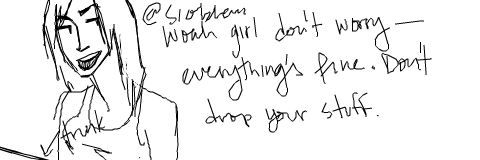 @sloblem
Woah girl don't worry —
everything's fine. Don't
drop your stuff.